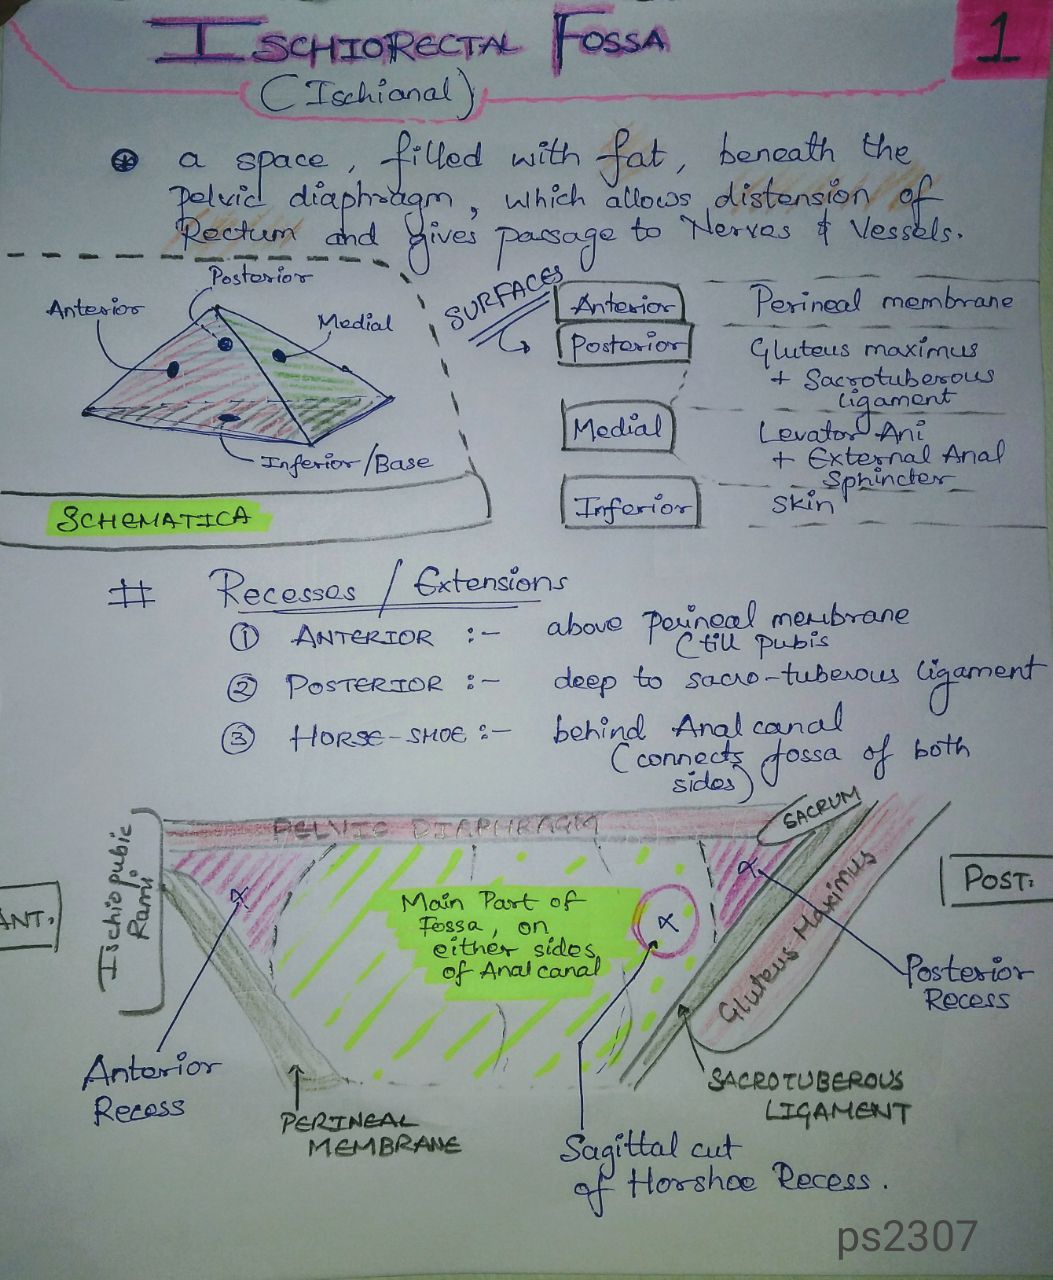 ISCHIORECTAL FOSSA
1
(Ischianal)
a space, filled with fat, beneath the
pelvic diaphragm, which allows distension of
Rectum and gives passage to Nerves & Vessels.
Posterior
Anterior
Medial
Inferior/Base
SCHEMATICA
SURFACES
Anterior Perineal membrane
Posterior Gluteus maximus
+ Sacrotuberous
ligament
Medial Levator Ani
+ External Anal
Sphincter
Inferior Skin
# Recesses / Extensions
① ANTERIOR :- above perineal membrane
(till pubis
② POSTERIOR :- deep to sacro-tuberous ligament
③ HORSE-SHOE :- behind Anal canal
(connects fossa of both
sides)
PELVIC DIAPHRAGM
SACRUM
Ischiopubic
Rami
ANT.
POST:
Main Part of
Fossa, on
either sides
of Anal canal
Gluteus Maximus
Posterior
Recess
Anterior
Recess
PERINEAL
MEMBRANE
SACROTUBEROUS
LIGAMENT
Sagittal cut
of Horshoe Recess.
ps2307